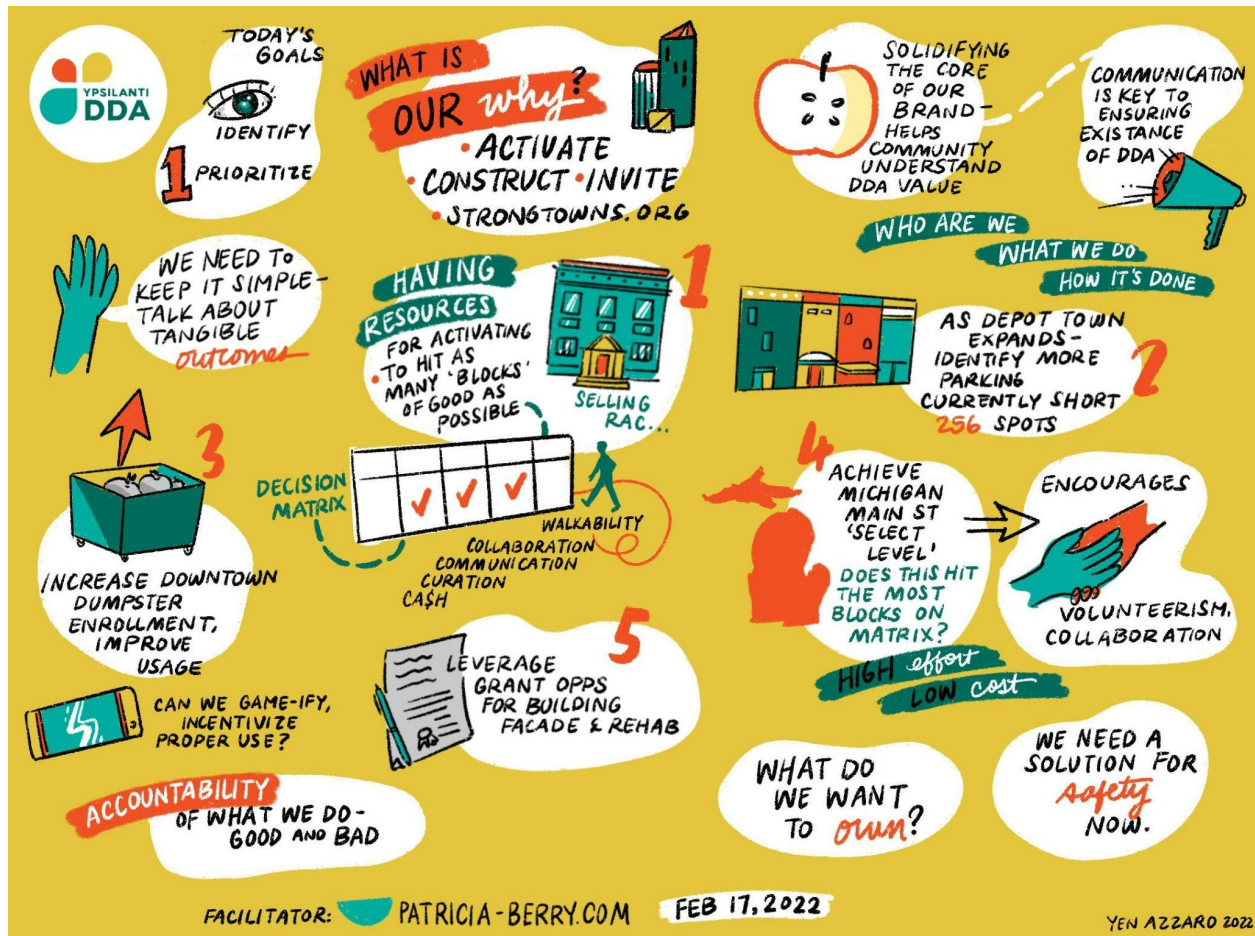 YPSILANTI
DDA
TODAY'S
GOALS
IDENTIFY
1 PRIORITIZE
WHAT IS
OUR why?
• ACTIVATE
• CONSTRUCT • INVITE
• STRONGTOWNS.ORG
SOLIDIFYING
THE CORE
OF OUR
BRAND-
HELPS
COMMUNITY
UNDERSTAND
DDA VALUE
COMMUNICATION
IS KEY TO
ENSURING
EXISTANCE
OF DDA
WHO ARE WE
WHAT WE DO
HOW IT'S DONE
WE NEED TO
KEEP IT SIMPLE-
TALK ABOUT
TANGIBLE
outcomes
1
HAVING
RESOURCES
FOR ACTIVATING
• TO HIT AS
MANY 'BLOCKS'
OF GOOD AS
POSSIBLE
SELLING
RAC...
2
AS DEPOT TOWN
EXPANDS-
IDENTIFY MORE
PARKING
CURRENTLY SHORT
256 SPOTS
3
INCREASE DOWNTOWN
DUMPSTER
ENROLLMENT,
IMPROVE
USAGE
DECISION
MATRIX
WALKABILITY
COLLABORATION
COMMUNICATION
CURATION
CA$H
4
ACHIEVE
MICHIGAN
MAIN ST
'SELECT
LEVEL'
DOES THIS HIT
THE MOST
BLOCKS ON
MATRIX?
HIGH effort
LOW cost
ENCOURAGES
VOLUNTEERISM,
COLLABORATION
5
LEVERAGE
GRANT OPPS
FOR BUILDING
FACADE & REHAB
CAN WE GAME-IFY,
INCENTIVIZE
PROPER USE?
ACCOUNTABILITY
OF WHAT WE DO-
GOOD AND BAD
WHAT DO
WE WANT
TO own?
WE NEED A
SOLUTION FOR
safety
NOW.
FACILITATOR: PATRICIA-BERRY.COM
FEB 17, 2022
YEN AZZARO 2022